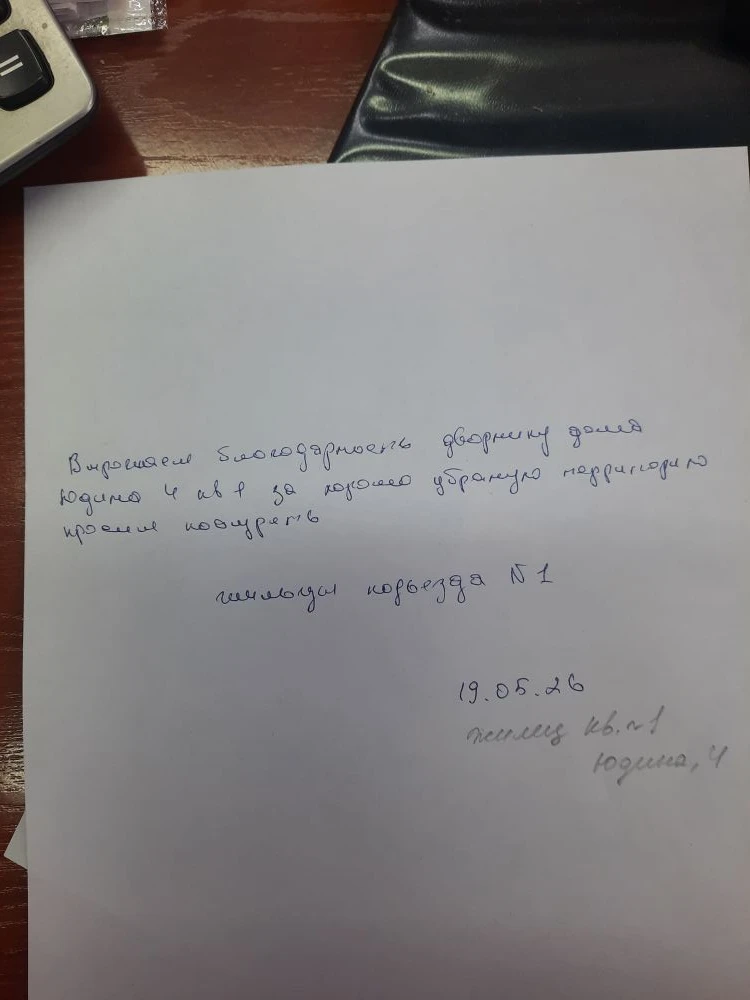 Выражаем благодарность дворнику дома
Юдина 4 кв 1 за хорошо убраную территорию
просим поощрить
жильцы подьезда N 1
19.05.26
жилец кв. №1
Юдина, 4